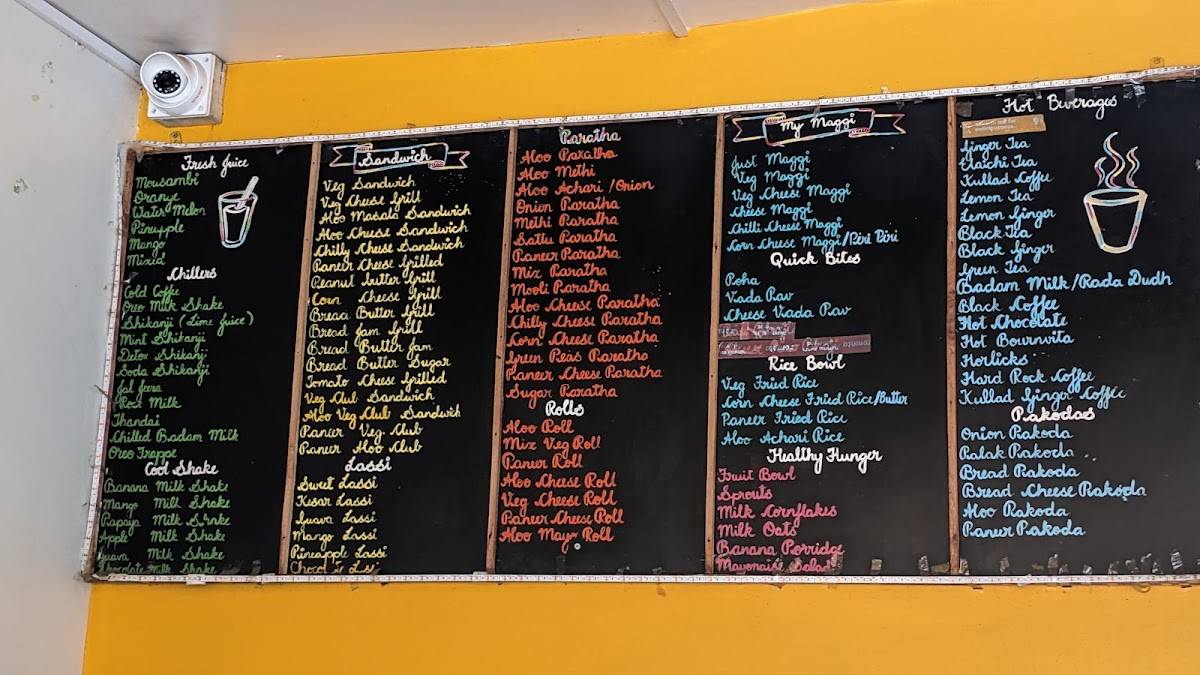 Fresh Juice
Mousambi
Orange
Water Melon
Pineapple
Mango
Mixed
Chillers
Cold Coffee
Oreo Milk Shake
Shikanji (Lime Juice)
Mint Shikanji
Detox Shikanji
Soda Shikanji
Jal Jeera
Rose Milk
Thandai
Chilled Badam Milk
Oreo Frappe
Cool Shake
Banana Milk Shake
Mango Milk Shake
Papaya Milk Shake
Apple Milk Shake
Guava Milk Shake
Chocolate Milk Shake
Sandwich
Veg Sandwich
Veg Cheese Grill
Aloo Masala Sandwich
Aloo Cheese Sandwich
Chilly Cheese Sandwich
Paneer Cheese Grilled
Peanut Butter Grill
Corn Cheese Grill
Bread Butter Grill
Bread Jam Grill
Bread Butter Jam
Bread Butter Sugar
Tomato Cheese Grilled
Veg Club Sandwich
Aloo Veg Club Sandwich
Paneer Veg. Club
Paneer Aloo Club
Lassi
Sweet Lassi
Kesar Lassi
Guava Lassi
Mango Lassi
Pineapple Lassi
Paratha
Aloo Paratha
Aloo Methi
Aloo Achari / Onion
Onion Paratha
Methi Paratha
Sattu Paratha
Paneer Paratha
Mix Paratha
Mooli Paratha
Aloo Cheese Paratha
Chilly Cheese Paratha
Corn Cheese Paratha
Green Peas Paratha
Paneer Cheese Paratha
Sugar Paratha
Rolls
Aloo Roll
Mix Veg Roll
Paneer Roll
Aloo Cheese Roll
Veg Cheese Roll
Paneer Cheese Roll
Aloo Mayo Roll
My Maggi
Just Maggi
Veg Maggi
Veg Cheese Maggi
Cheese Maggi
Chilli Cheese Maggi
Corn Cheese Maggi/Piri Piri
Quick Bites
Poha
Vada Pav
Cheese Vada Pav
Rice Bowl
Veg Fried Rice
Corn Cheese Fried Rice/Butter
Paneer Fried Rice
Aloo Achari Rice
Healthy Hunger
Fruit Bowl
Sprouts
Milk Cornflakes
Milk Oats
Banana Porridge
Mayonaise Salad
Hot Beverages
Ginger Tea
Elaichi Tea
Kullad Coffee
Lemon Tea
Lemon Ginger
Black Tea
Black Ginger
Green Tea
Badam Milk/Rada Dudh
Black Coffee
Hot Chocolate
Hot Bournvita
Horlicks
Hard Rock Coffee
Kullad Ginger Coffee
Pakodas
Onion Pakoda
Palak Pakoda
Bread Pakoda
Bread Cheese Pakoda
Aloo Pakoda
Paneer Pakoda